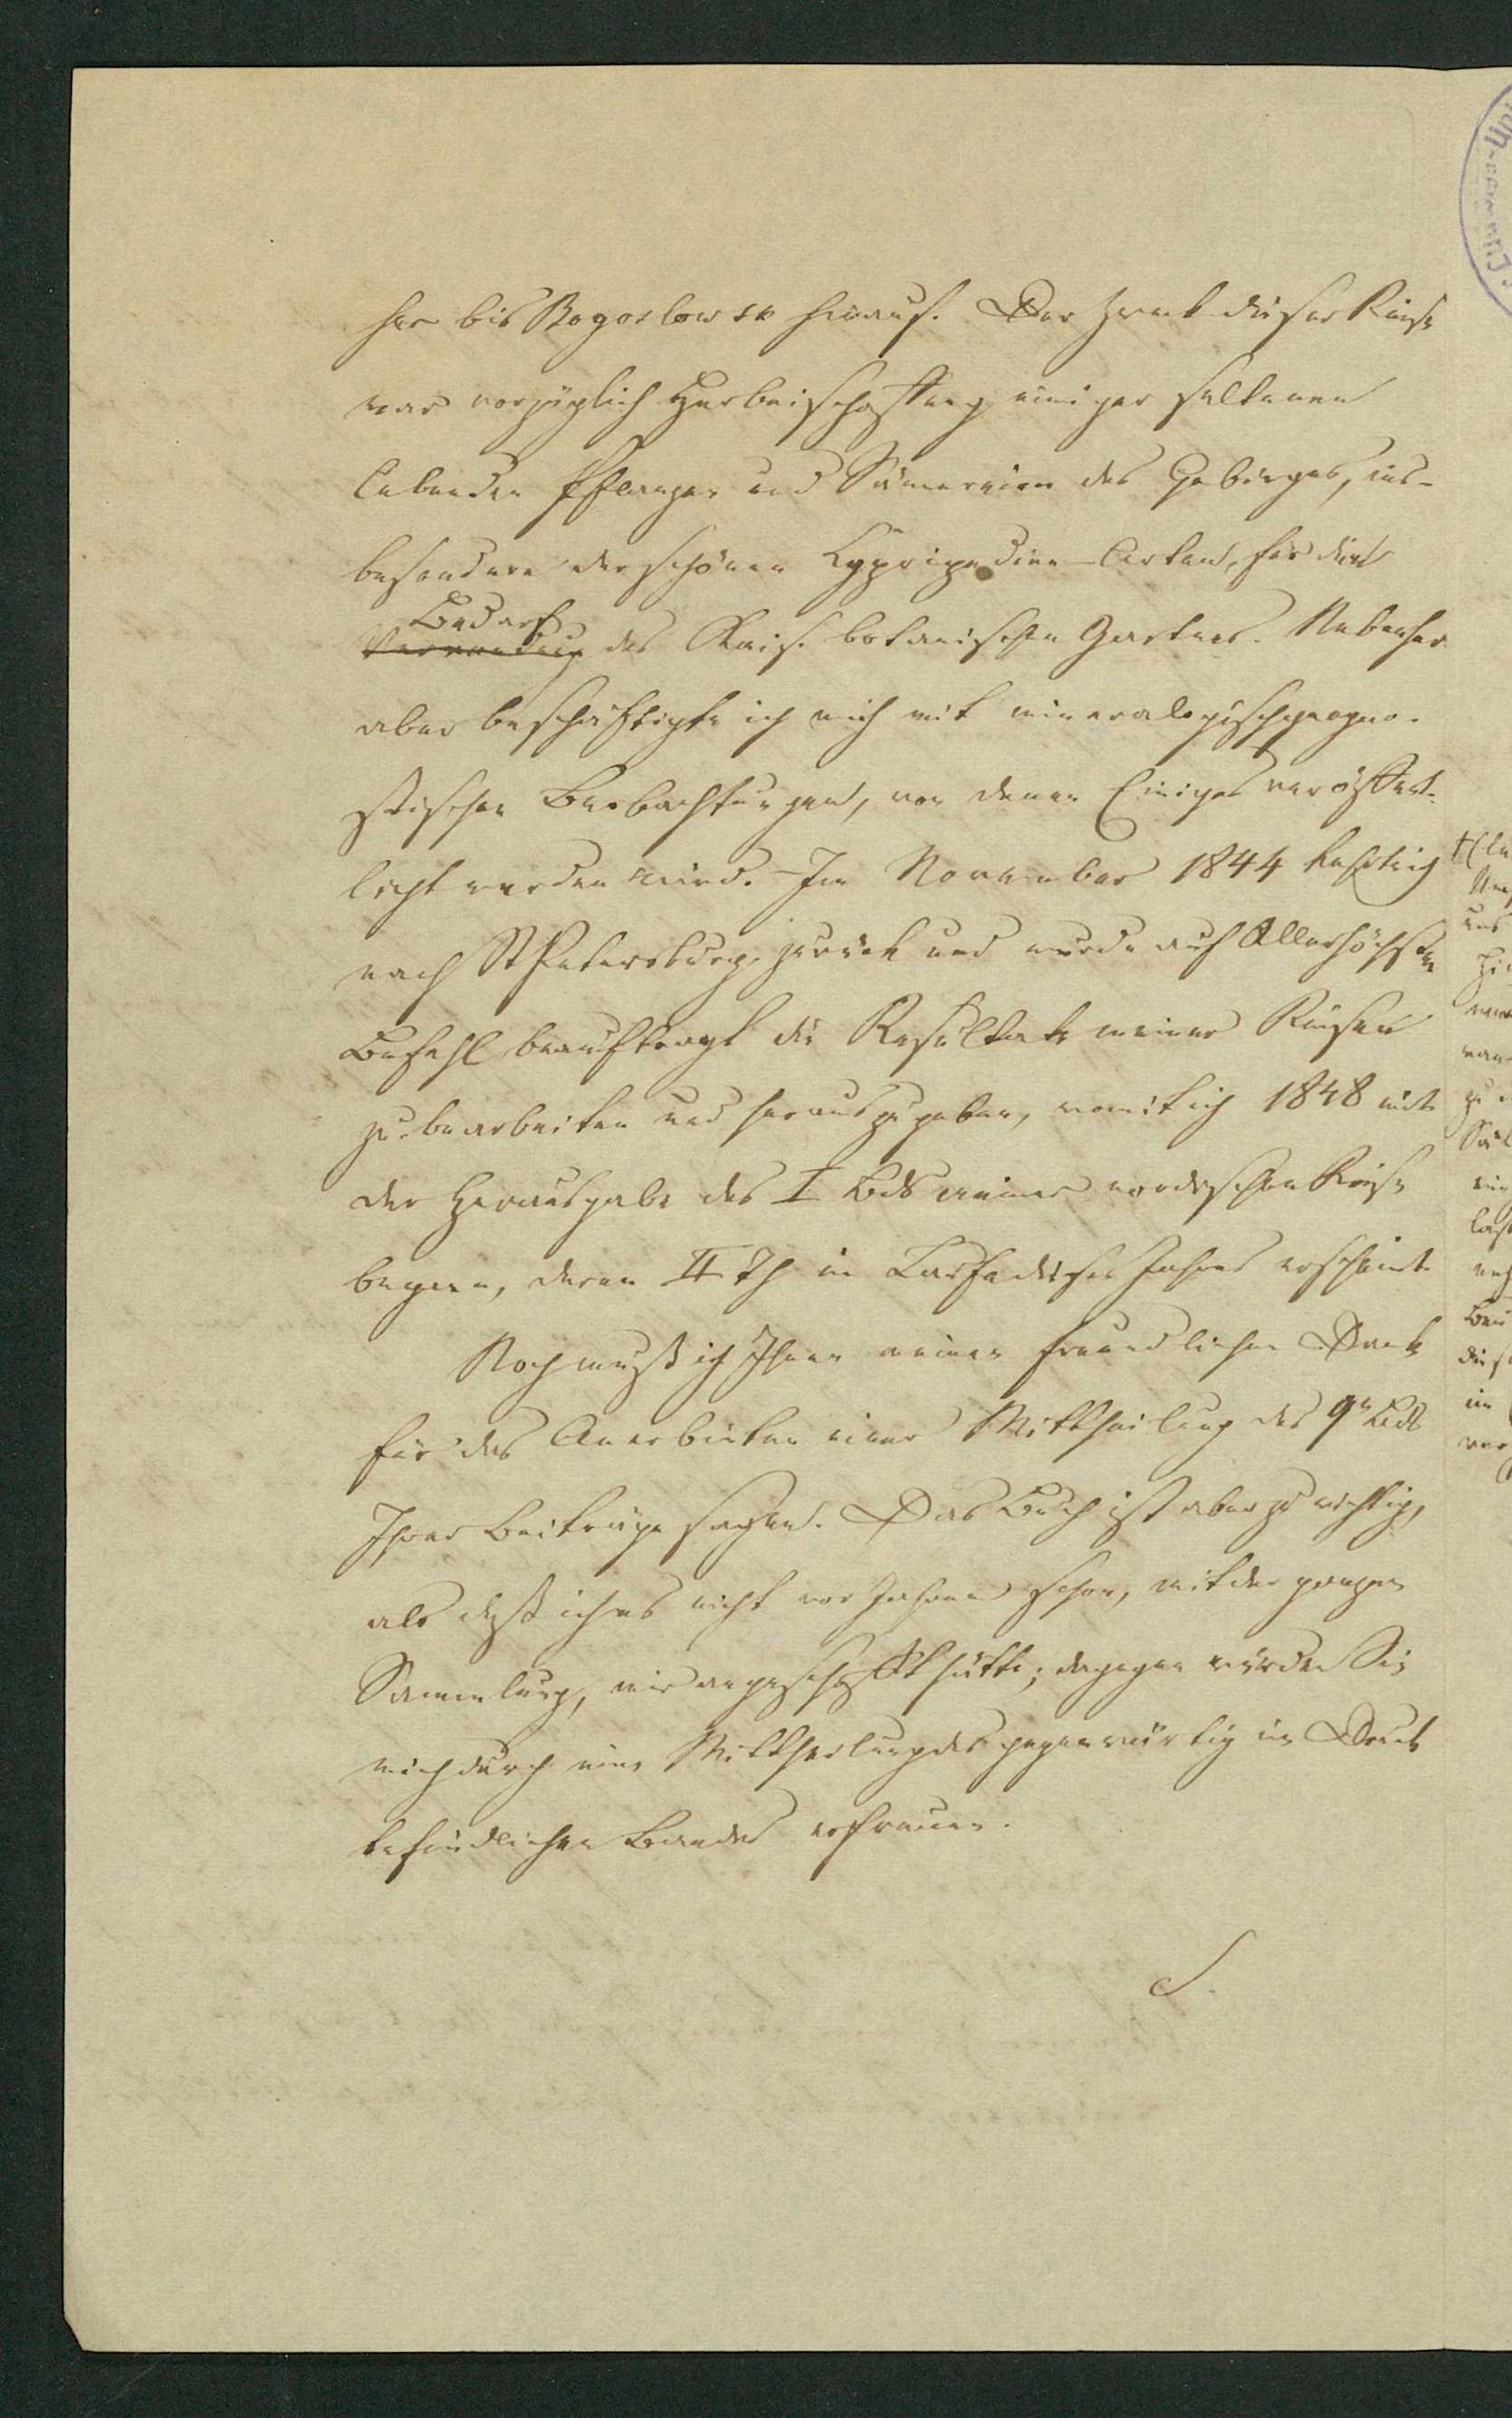 her bis Bogoslowsk hinauf. Der Zweck dieser Reise
war vorzüglich Herbeischaffung einiger seltenen
lebenden Pflanzen und Sämereien des Gebirges, ins-
besondere der schönen Cypripedien-Arten, für den
Bedarf
Verwendung des Kais. botanischen Gartens. Nebenher
aber beschäftigte ich mich mit mineralogisch geogno-
stischen Beobachtungen, von denen Einiges veröffent-
licht werden wird. – Im November 1844 kehrte ich
nach St Petersburg zurück und wurde auf Allerhöchsten
Befehl beauftragt die Resultate meiner Reisen
zu bearbeiten und herauszugeben, womit ich 1848 mit
der Herausgabe des I Bds meiner nordischen Reise
begann, deren II Th im Laufe dieses Jahres erscheint
Noch muß ich Ihnen meinen freundlichen Dank
für das Anerbieten einer Mittheilung des 9n Bds
Ihrer Beiträge sagen. Das Buch ist aber zu wichtig,
als daß ich es nicht vor Jahren schon, mit der ganzen
Sammlung, mir angeschafft hätte; dagegen würden Sie
mich durch eine Mittheilung des gegenwärtig im Druck
befindlichen Bandes erfreuen.
S.